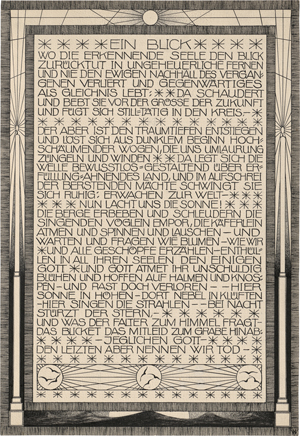 EIN BLICK
WO DIE ERKENNENDE SEELE DEN BLICK
ZURÜCKTUT IN UNGEHEUERLICHE FERNEN
UND NIE DEN EWIGEN NACHHALL DES VERGAN-
GENEN VERLIERT UND GEGENWÄRTIGES
ALS GLEICHNIS LEBT: DA SCHAUDERT
UND BEBT SIE VOR DER GRÖSSE DER ZUKUNFT
UND FÜGT SICH STILL-TÄTIG IN DEN KREIS-
DER ABER IST DEN TRAUMTIEFEN ENTSTIEGEN
UND LÖST SICH AUS DUNKLEM BEGINN HOCH-
SCHÄUMENDER WOGEN, DIE UNS UMLAUERND
ZÜNGELN UND WINDEN DA LEGT SICH DIE
WELLE BEWUSSTLOS-GESTALTEND ÜBER ER-
FÜLLUNG-AHNENDES LAND, UND IM AUFSCHREI
DER BERSTENDEN MÄCHTE SCHWINGT SIE
SICH RUHIG: ERWACHEN ZUR WELT-
NUN LACHT UNS DIE SONNE!
DIE BERGE ERBEBEN UND SCHLEUDERN DIE
SINGENDEN VÖGLEIN EMPOR, DIE KÄFER
ATMEN UND SPINNEN UND LAUSCHEN- UND
WARTEN UND FRAGEN WIE BLUMEN-WIE WIR
UND ALLE GESCHÖPFE ERZÄHLEN-ENTHÜL-
LEN IN ALL IHREN SEELEN DEN EINIGEN
GOTT UND GOTT ATMET IHR UNSCHULDIG
BLÜHEN UND HOFFEN AUF HALMEN UND KNOS-
PEN- UND RAST DOCH VERLOREN-- HIER
SONNE IN HÖHEN-DORT NEBEL IN KLÜFTEN
-HIER SINGEN DIE STRAHLEN-- BEI NACHT
STÜRZT DER STERN.-
UND WAS DER FALTER ZUM HIMMEL FRAGT
DAS BÜCKET DAS MITLEID ZUM GRABE HINAB:
JEGLICHEN GOTT-
DEN LETZTEN ABER NENNEN WIR TOD--